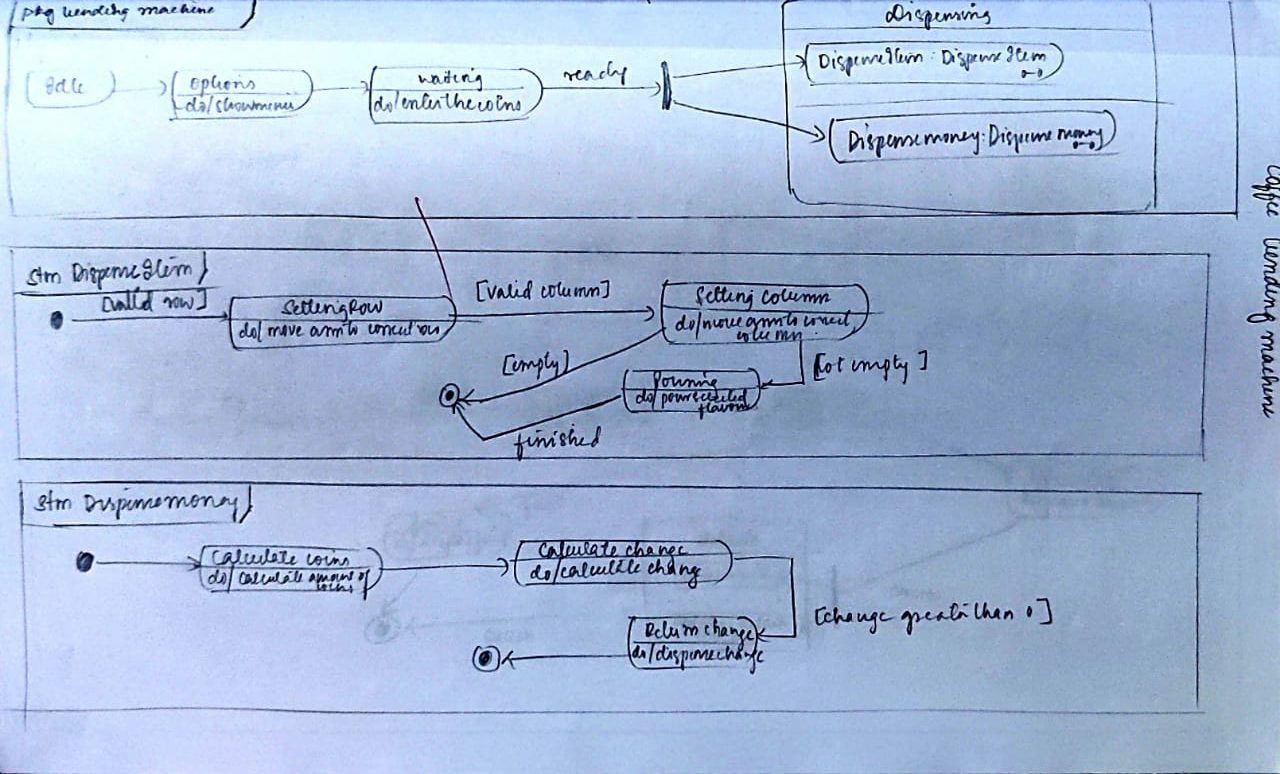 pkg vending machine
Dispensing
Idle
options
do/showmenu
waiting
do/enter the coins
ready
DispenseItem : DispenseItem
Dispensemoney : Dispense money
Coffee vending machine
stm DispenseItem
[valid row]
SettingRow
do/ move arm to correct row
[valid column]
Setting Column
do/move arm to correct
column
[empty]
[not empty]
Pouring
do/ pour selected
flavour
finished
stm Dispensemoney
Calculate coins
do/ calculate amount of
coins
Calculate change
do/calculate change
[change greater than 0]
Return change
do/dispensechange